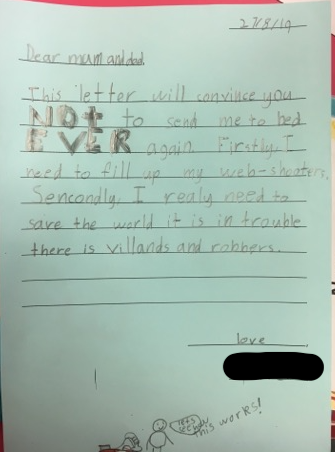 27/8/19
Dear mum and dad
This letter will convince you
NOt to send me to bed
EVER again. Firstly, I
need to fill up my web-shooters.
Sencondly, I realy need to
save the world it is in trouble
there is villands and robbers.
love
this works!